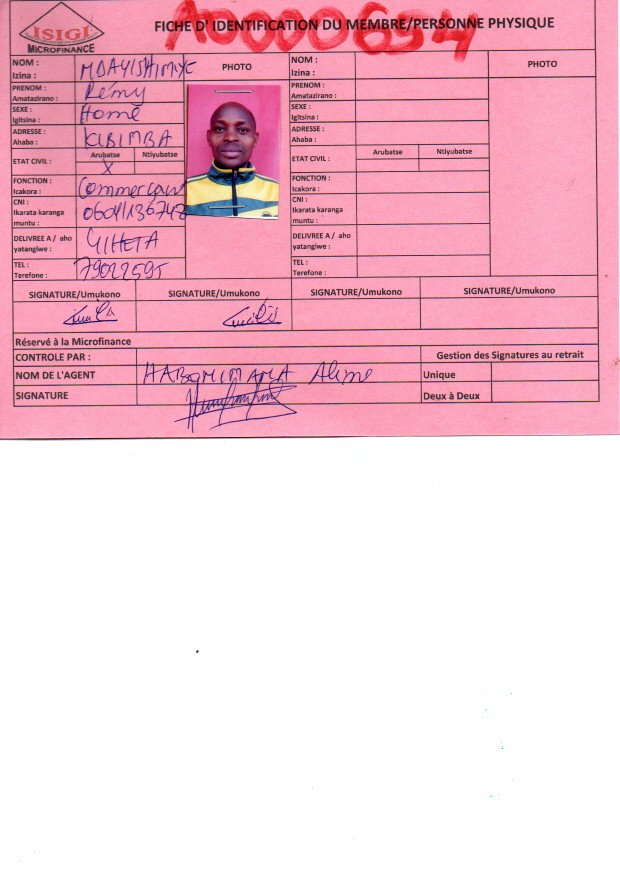 ISIGI
MICROFINANCE
FICHE D' IDENTIFICATION DU MEMBRE/PERSONNE PHYSIQUE
A00000654
NOM :
Izina :
NDAYISHIMIYE
PHOTO
PRENOM :
Amatazirano :
Rémy
SEXE :
Igitsina :
Home
ADRESSE :
Ahaba :
KIBIMBA
ETAT CIVIL :
Arubatse
Ntiyubatse
X
FONCTION :
Icakora :
Commerçant
CNI :
Ikarata karanga
muntu :
DELIVREE A / aho
yatangiwe :
GIHETA
TEL :
Terefone :
79022595
NOM :
Izina :
PHOTO
PRENOM :
Amatazirano :
SEXE :
Igitsina :
ADRESSE :
Ahaba :
ETAT CIVIL :
Arubatse
Ntiyubatse
FONCTION :
Icakora :
CNI :
Ikarata karanga
muntu :
DELIVREE A / aho
yatangiwe :
TEL :
Terefone :
SIGNATURE/Umukono
SIGNATURE/Umukono
SIGNATURE/Umukono
SIGNATURE/Umukono
Réservé à la Microfinance
CONTROLE PAR :
Gestion des Signatures au retrait
NOM DE L'AGENT
HABONIMANA Aline
Unique
SIGNATURE
Deux à Deux